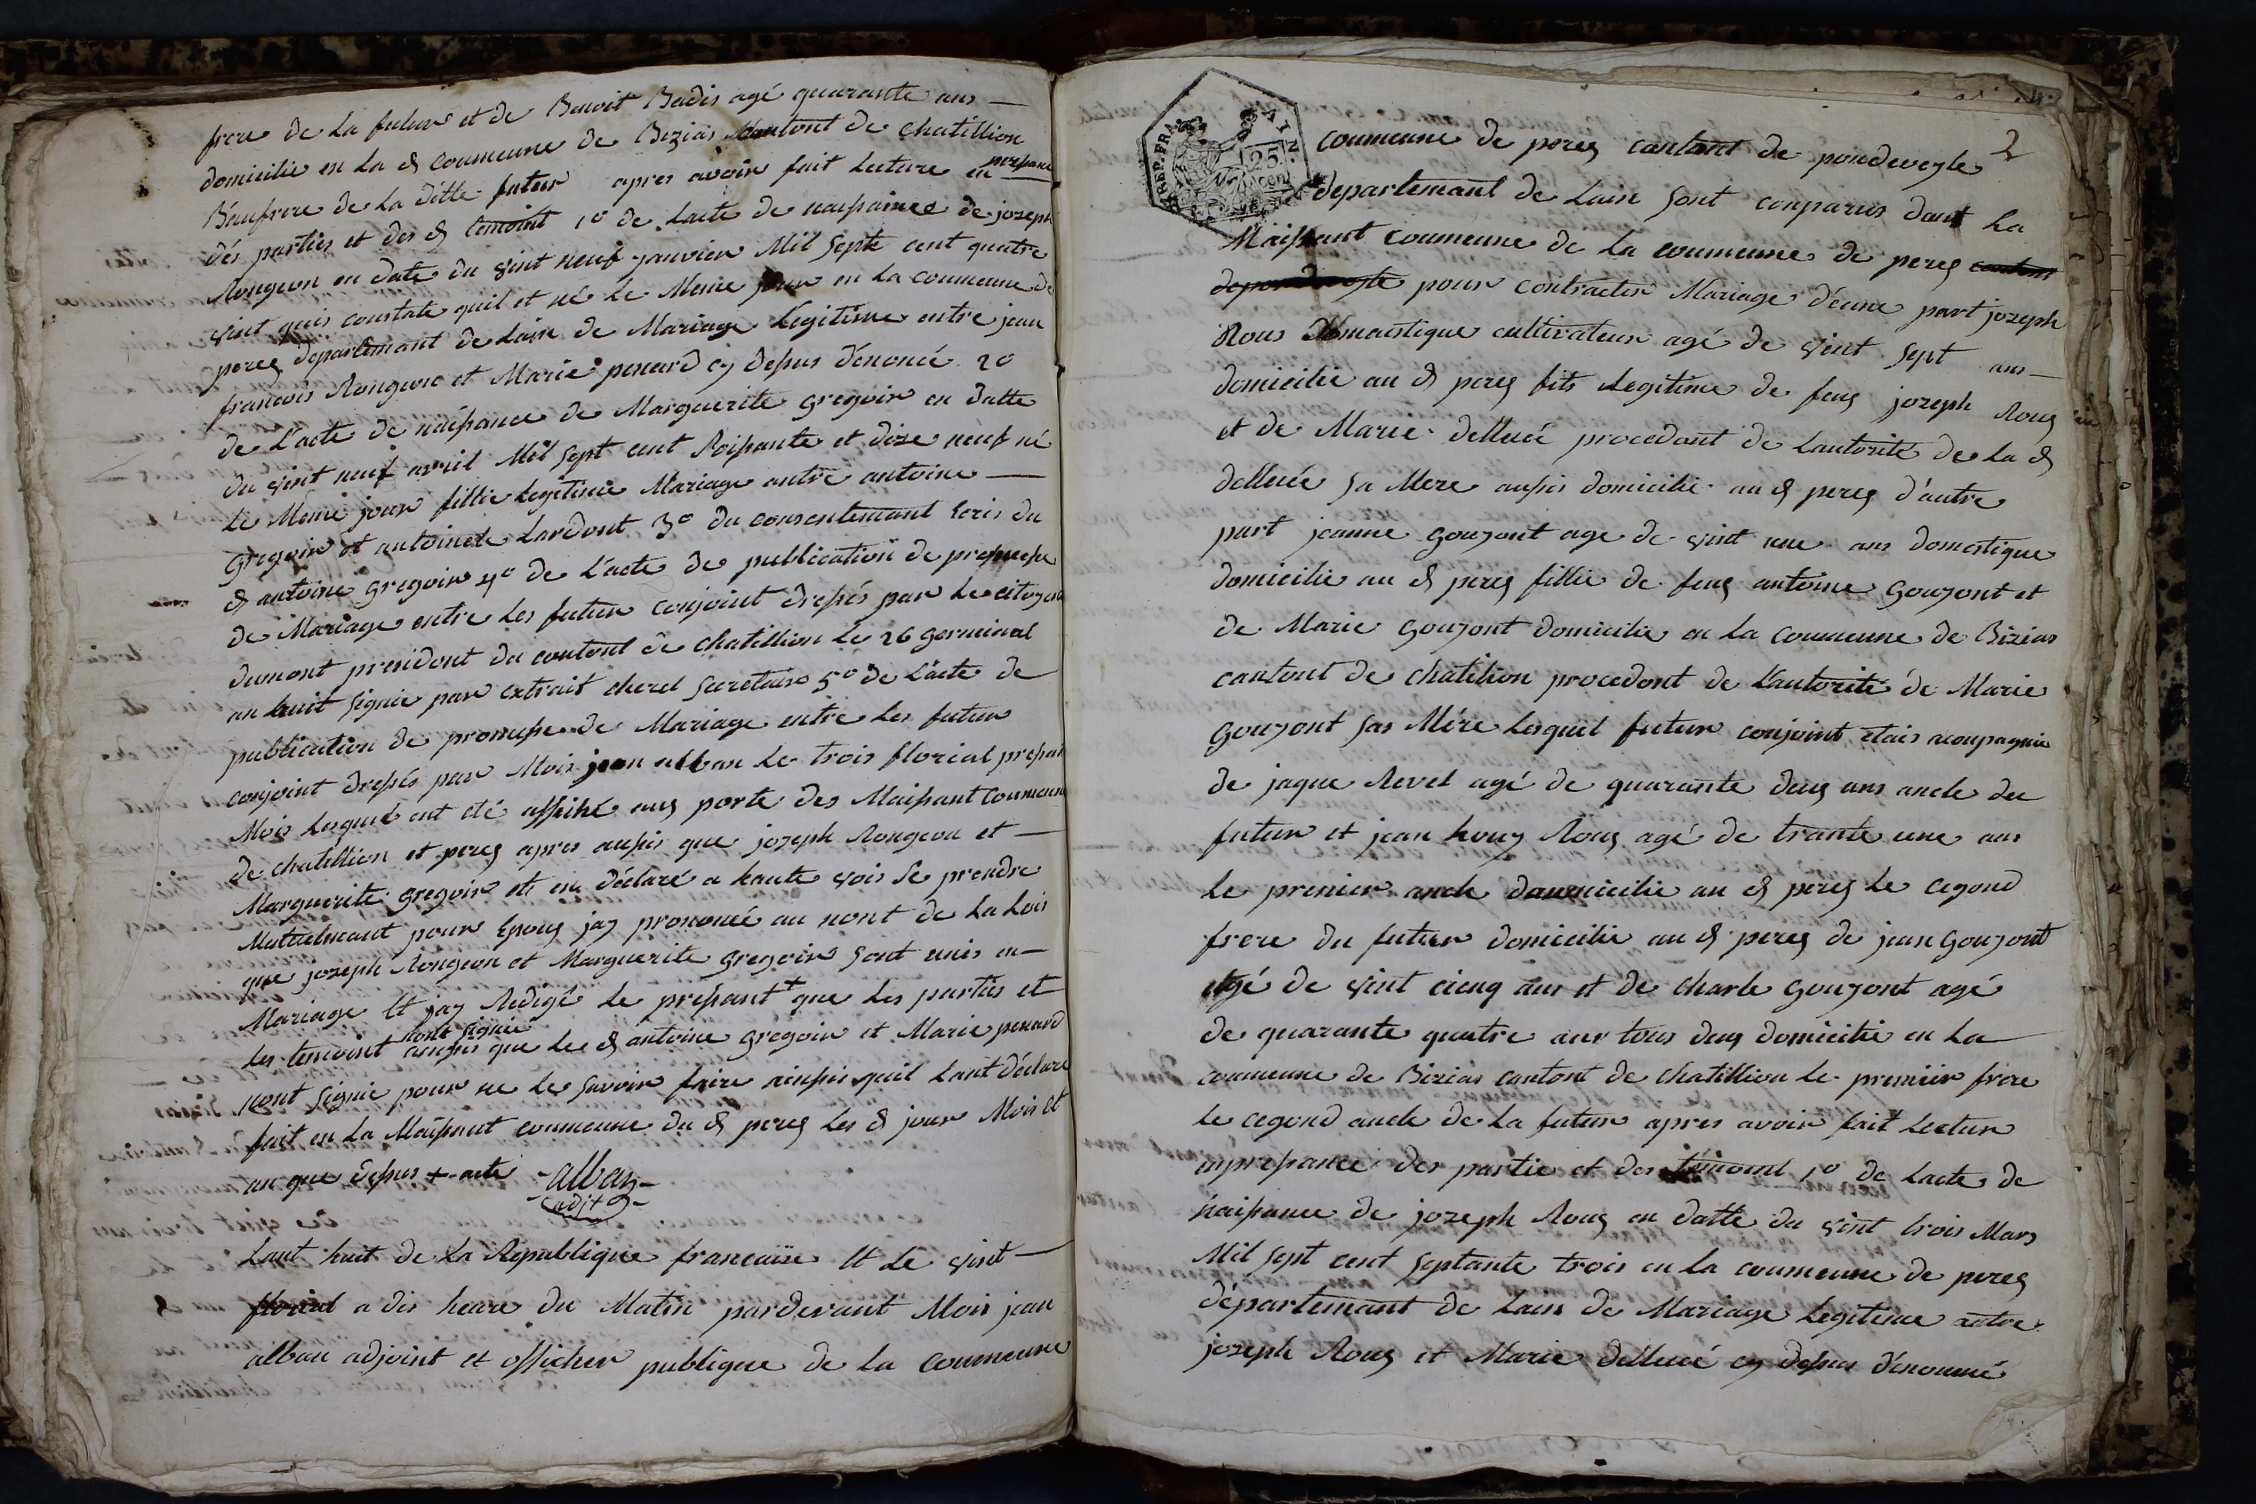 frere de La futur et de Benoit Badis agé quarante ans
domicilie en La d coumeune de Bizias Cantont de chatillion
Beaufrere de La ditte futur apres avoir fait Lecture en presance
dés parties et des d temoint 1o de Lacte de naissaince de jozeph
Rongeon en date du vint neuf janvier Mil Septe cent quatre
vint quis constate quil et né Le Meme jour en La coumeune de
perez departemant de Lain de Mariage Legitime entre jean
francois Rongeon et Marie penard cy depus dénoncé 2o
de L'acte de naissance de Marguerite gregoir en datte
du vint neuf avril Mil Sept cent Soissante et dize neuf né
Le Meme jour fillie Legitime Mariage antre antoine
gregoir et antoinete Lardont 3o du consentemant Ecris du
d antoine gregoir 4o de L'acte de publication de promesse
de Mariage entre Les futur conjoint dressés par Le citoyen
dumont president du contont de chatillion Le 26 germinal
an huit Signie par extrait cherel Secretaire 5o de L'acte de
publication de promesse de Mariage entre Les futur
conjoint dressés par Mois jean alban Le trois florial present
Mois Lesquel ont eté affiché aus porte des Maissant Coumeune
de chatillion et perez apres aussis que jozeph Rongeon et
Marguerite gregoir ets en déclaré a haute vois Se prendre
Mutuelmant pour Epouz jay prononcé au nont de La Lois
que jozeph Rongeon et Marguerite gregoir Sont unis en
Mariage Et jay Redigé Le pressant + que Les parties et
Les temoint nont Signie aussis que Le d antoine gregoir et Marie penard
nont Signie pour ne Le Savoir faire ainssis quil Lant déclaré
fait en La Maissant coumeune du d perez Les d jour Mois Et
an que depus + acte alban
adjt
Lant huit de La Republique francaise Et Le vint
florial a dis heure du Matin pardevant Mois jean
alban adjoint et officher publique de La Coumeune
2
REP. FRA
AIN
25
coumeune de perez cantont de pondeveyle
departemant de Lain Sont conparus dant La
Maissant coumeune de La coumeune de perez
pour contracter Mariage d'eune part jozeph
Rous domaistique cultivateur agé de vint Sept ans
domicilie au d perez fits Legitime de feuz jozeph Rouz
et de Marie dellucé procedont de Lautorité de La d
dellucé Sa Mere aussis domicilie au d perez d'autre
part jeanne goujont age de vint une ans domestique
domicilie au d perez fillie de feuz antoine goujont et
de Marie goujont domicilie en La coumeune de Bizias
cantont de chatilion procedont de L'autorité de Marie
goujont Sas Mére Lesquel futur conjoint etais acoupagnie
de jaque Revel agé de quarante deuz ans ancle du
futur et jean Rouz agé de trante une ans
Le premier ancle doumicilie au d perez Le cegond
frere du futur domicilie au d perez de jean goujont
agé de vint cienq ans et de charle goujont agé
de quarante quatre ans tous deuz domicilie en La
coumeune de Bizias cantont de chatillion Le premiér frére
Le cegond ancle de La futur apres avoir fait Lectur
enpressance des partie et des temoint 1o de Lacte de
naissance de jozeph Rouz en datte du vint trois Mars
Mil Sept cent Septante trois en La coumeune de perez
département de Lain de Mariage Legitime antre
jozeph Rouz et Marie dellucé cy depus dénoumé